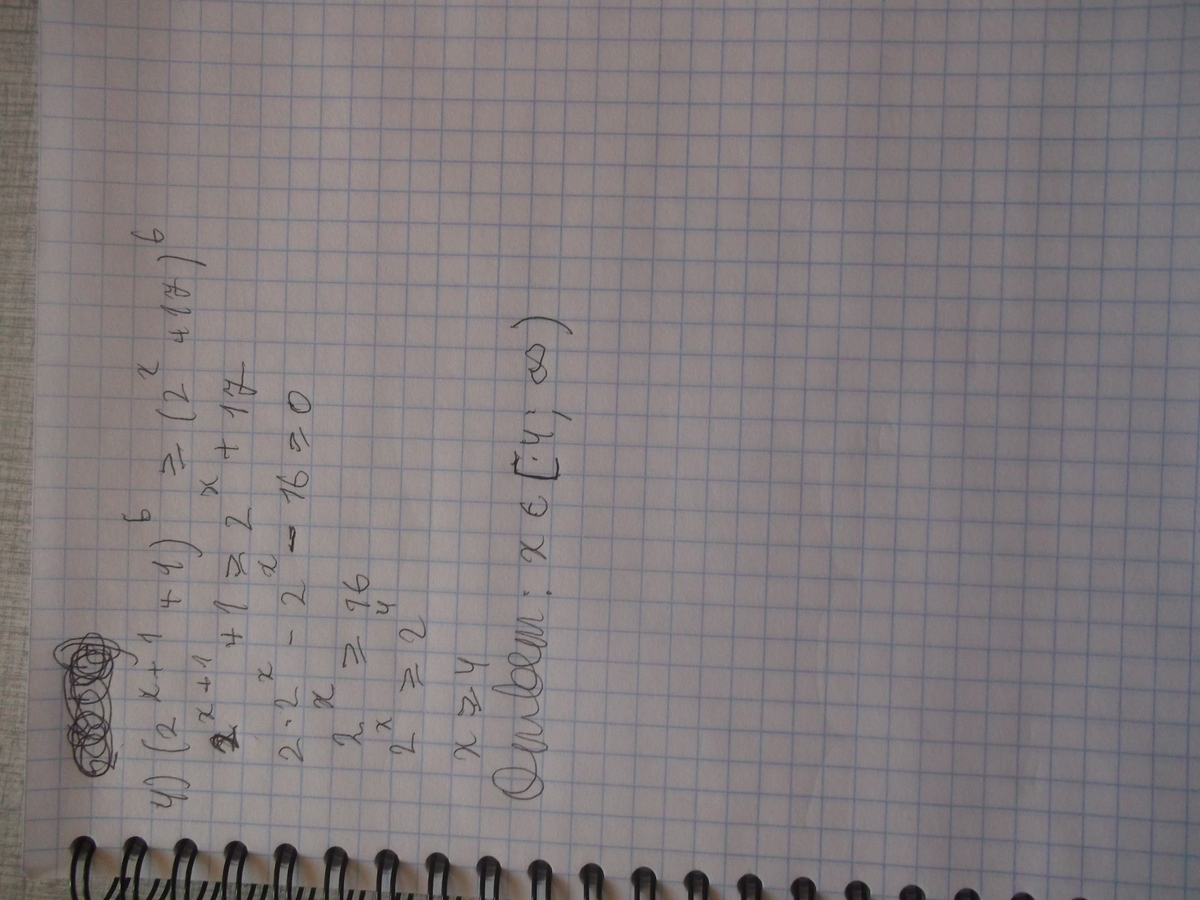 4) (2^(x+1) +1)^6 ≥ (2^x +17)^6
2^(x+1) +1 ≥ 2^x + 17
2·2^x - 2^x - 16 ≥ 0
2^x ≥ 16
2^x ≥ 2^4
x ≥ 4
Ответ: x ∈ [4; ∞)